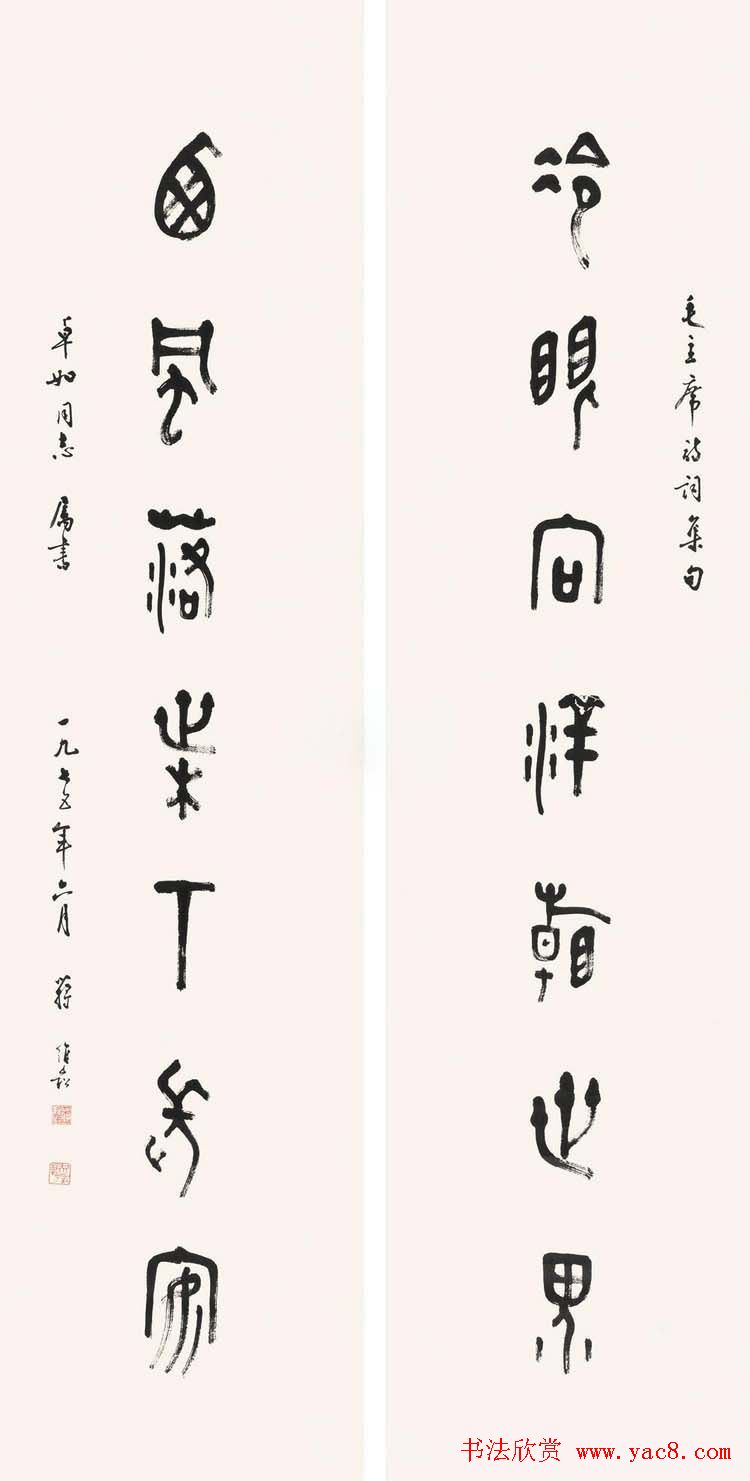 毛主席詩詞集句
冷眼向洋看世界
西風落葉下長安
卓如同志 属書 一九七五年六月 蔣維崧
书法欣赏 www.yac8.com